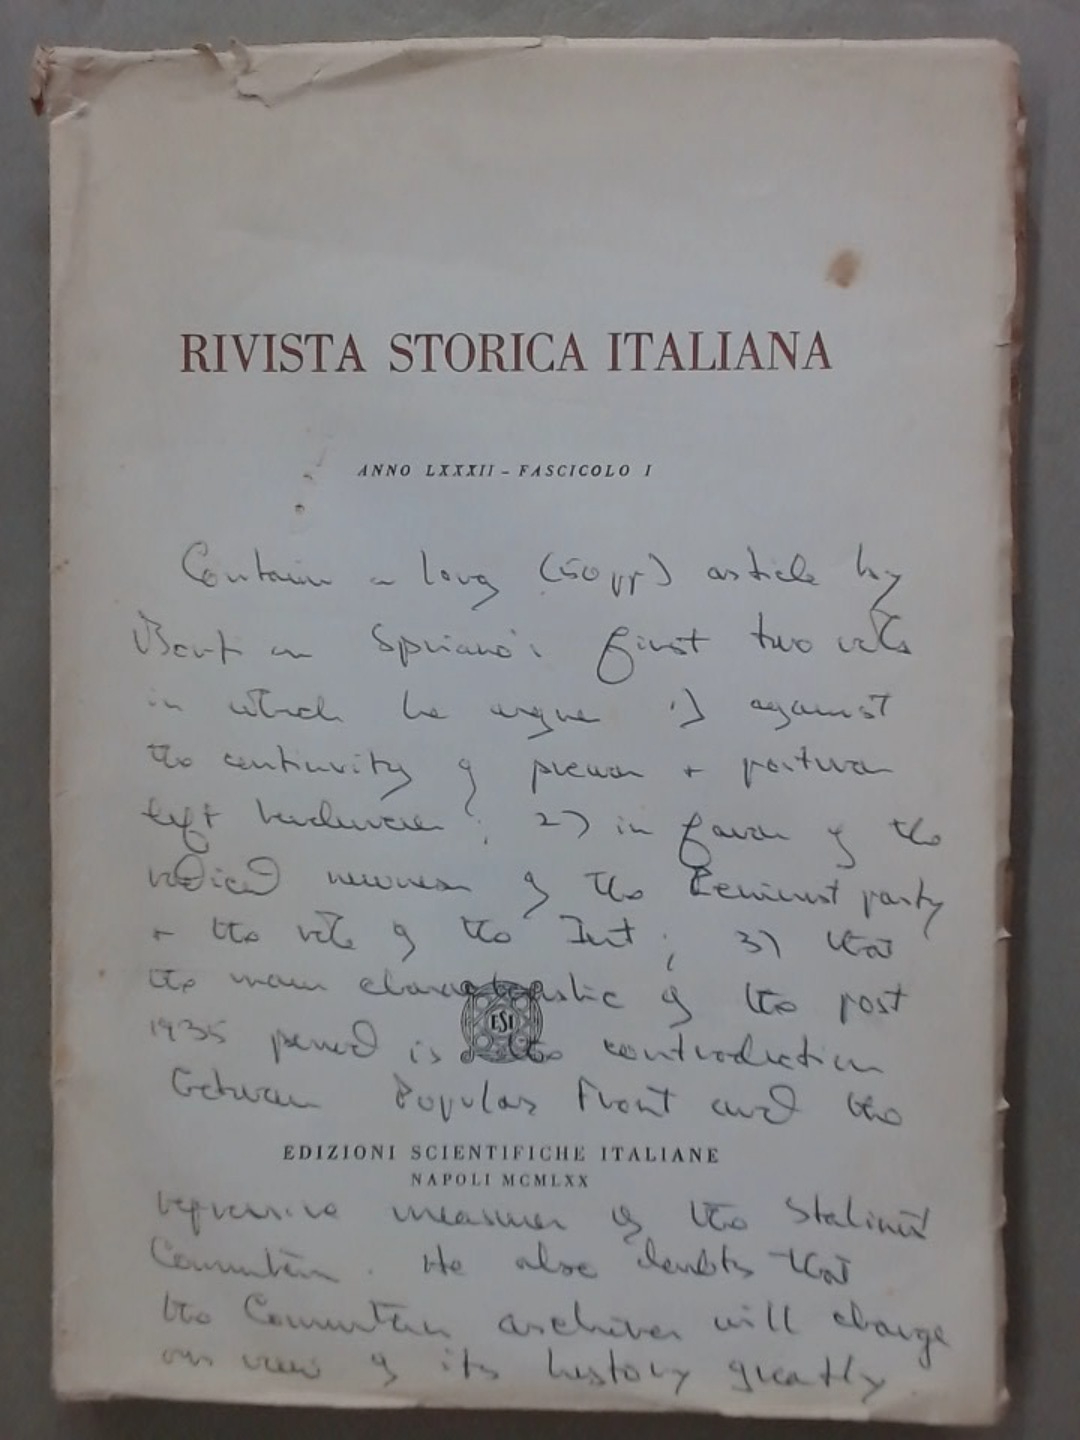 RIVISTA STORICA ITALIANA
ANNO LXXXII - FASCICOLO I
Contains a long (50 pp) article by
on Spriano's first two vols
in which he argues 1) against
the continuity of prewar + postwar
left ; 2) in favour of the
radical newness of the Leninist party
+ the role of the Int; 3) that
the main characteristic of the post
ESI
1935 period is the contradiction
between Popular Front and the
EDIZIONI SCIENTIFICHE ITALIANE
NAPOLI MCMLXX
repressive measures of the Stalinist
Comintern. He also doubts that
the Comintern archives will change
our view of its history greatly